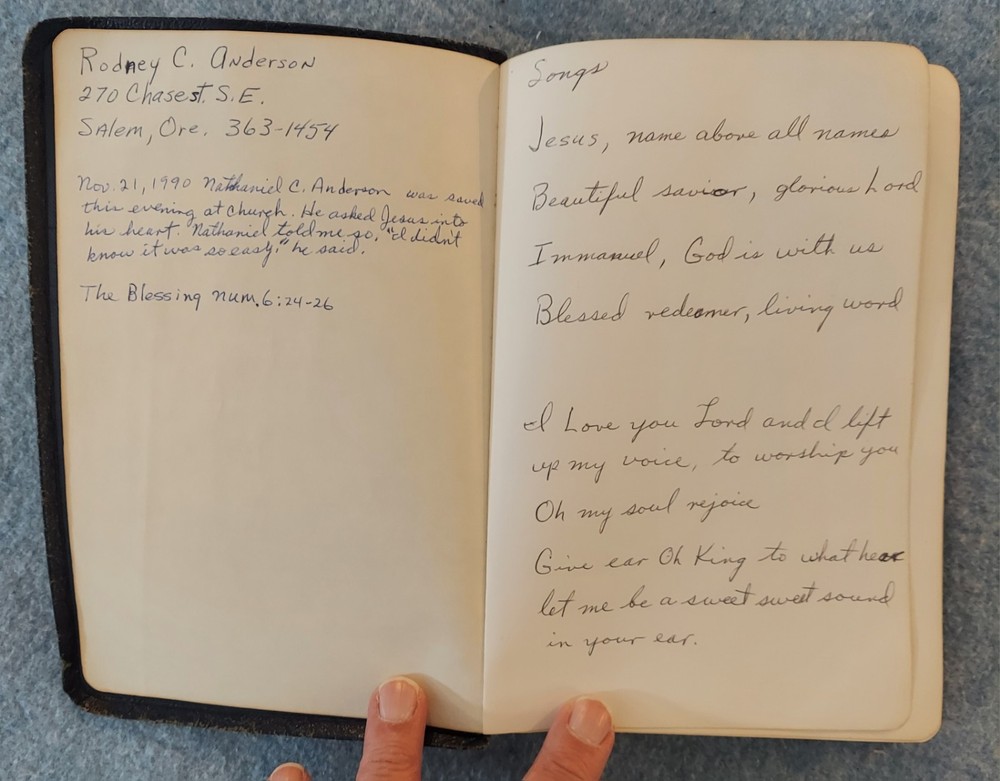 Rodney C. Anderson
270 Chase St. S.E.
Salem, Ore. 363-1454
Nov. 21, 1990 Nathaniel C. Anderson was saved
this evening at church. He asked Jesus into
his heart. Nathaniel told me so. "I didn't
know it was so easy." he said.
The Blessing Num. 6:24-26
Songs
Jesus, name above all names
Beautiful savior, glorious Lord
Immanuel, God is with us
Blessed redeemer, living word
I Love you Lord and I lift
up my voice, to worship you
Oh my soul rejoice
Give ear Oh King to what hear
let me be a sweet sweet sound
in your ear.